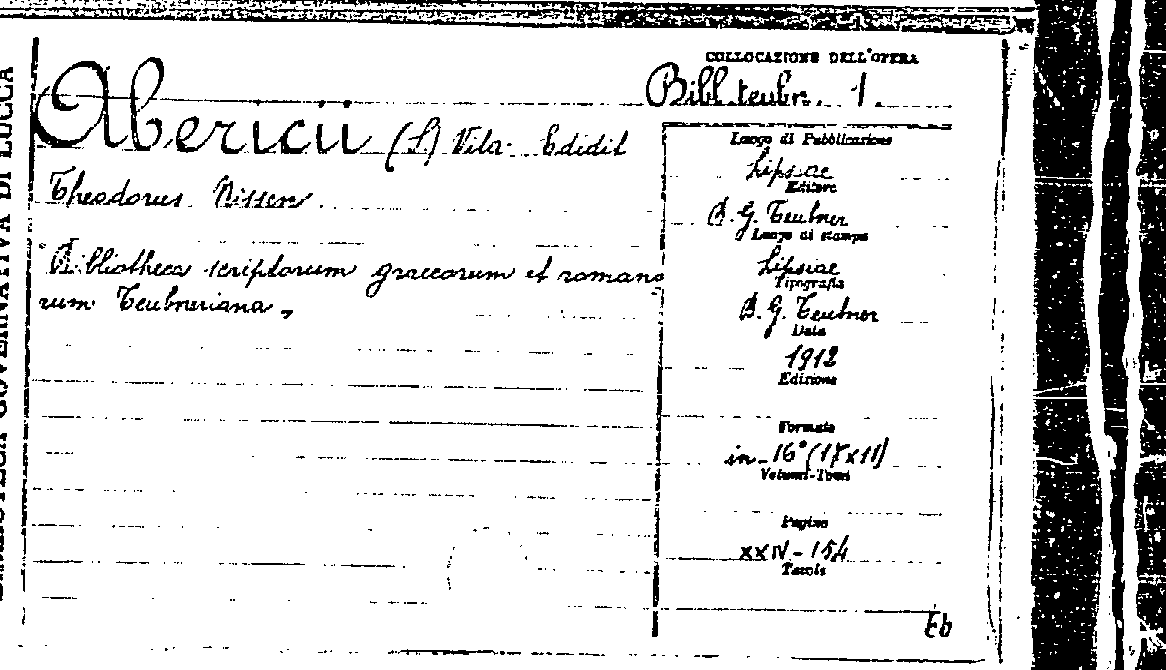 BIBLIOTECA GOVERNATIVA DI LUCCA
COLLOCAZIONE DELL'OPERA
Bibl. teubn. 1.
Abericii (S.) Vita. Edidit
Theodorus Nissen
Bibliotheca scriptorum graecorum et romano
rum Teubneriana,
Luogo di Pubblicazione
Lipsiae
Editore
B. G. Teubner
Luogo di stampa
Lipsiae
Tipografia
B. G. Teubner
Data
1912
Edizione
Formato
in-16° (17x11)
Volumi-Tomi
Pagine
XXIV-154
Tavole
Eb